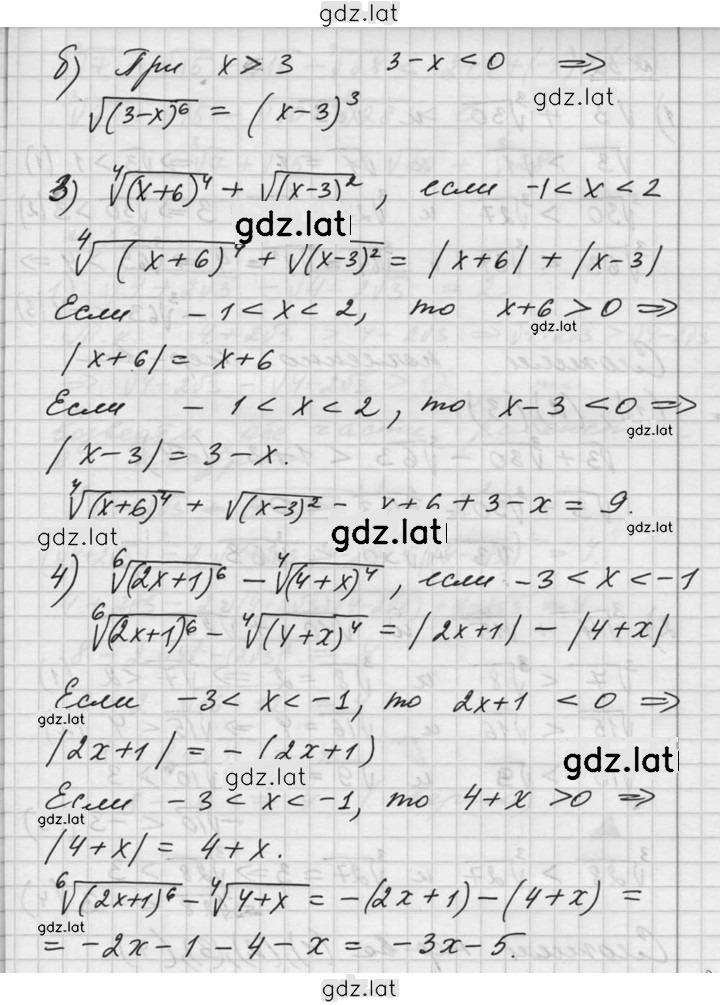 gdz.lat
б) При x > 3 3-x < 0 ⇒
gdz.lat
√(3-x)⁶ = (x-3)³
3) ⁴√(x+6)⁴ + √(x-3)², если -1 < x < 2
gdz.lat
⁴√(x+6)⁴ + √(x-3)² = |x+6| + |x-3|
Если -1 < x < 2, то x+6 > 0 ⇒
gdz.lat
|x+6| = x+6
Если -1 < x < 2, то x-3 < 0 ⇒
gdz.lat
|x-3| = 3-x.
⁴√(x+6)⁴ + √(x-3)² = x+6+3-x = 9.
gdz.lat
gdz.lat
4) ⁶√(2x+1)⁶ - ⁴√(4+x)⁴, если -3 < x < -1
⁶√(2x+1)⁶ - ⁴√(4+x)⁴ = |2x+1| - |4+x|
gdz.lat
Если -3 < x < -1, то 2x+1 < 0 ⇒
gdz.lat
|2x+1| = -(2x+1)
gdz.lat
gdz.lat
Если -3 < x < -1, то 4+x > 0 ⇒
gdz.lat
|4+x| = 4+x.
⁶√(2x+1)⁶ - ⁴√4+x = -(2x+1) - (4+x) =
gdz.lat
= -2x-1-4-x = -3x-5.
gdz.lat